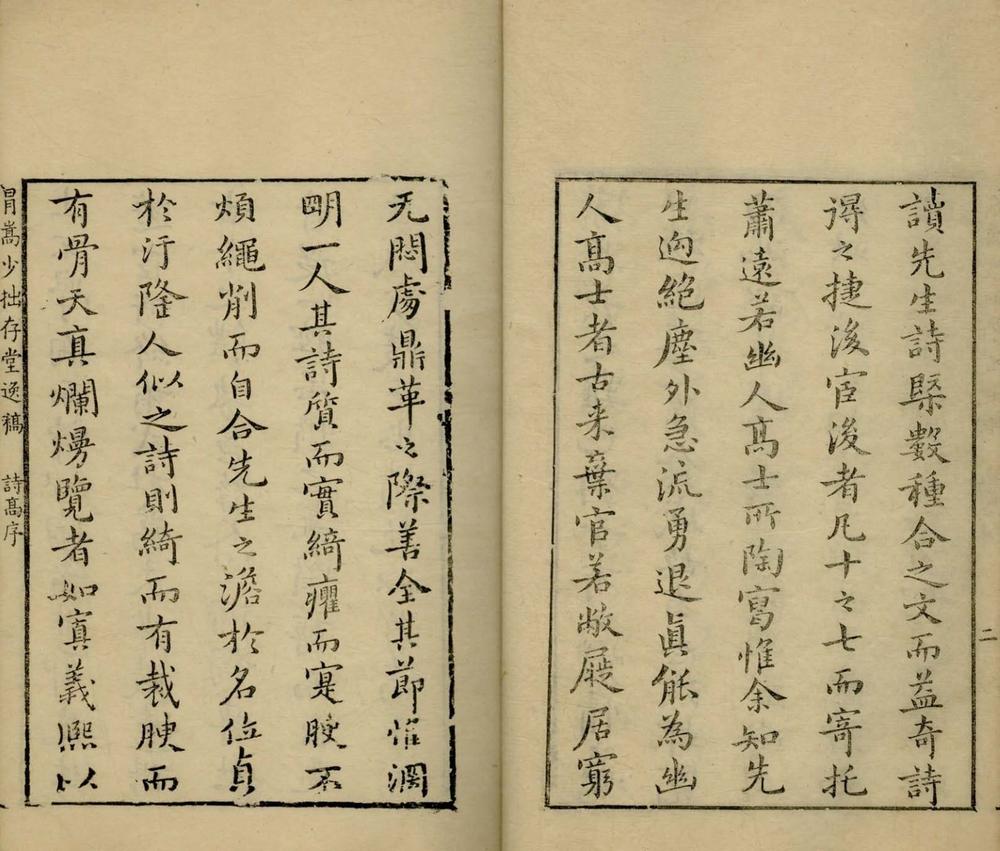 讀先生詩槩數種合之文而益奇詩
淂之捷後宦後者凡十之七而寄托
蕭遠若幽人高士所陶寫惟余知先
生逈絕塵外急流勇退眞能為幽
人高士者古来棄官若敝屣居窮
二
无悶處鼎革之際善全其節惟淵
明一人其詩質而實綺癯而寔腴不
煩繩削而自合先生之澹於名位貞
於汙隆人似之詩則綺而有裁腴而
有骨天真爛熳覽者如寘義熈以
冐嵩少拙存堂逸稿 詩髙序